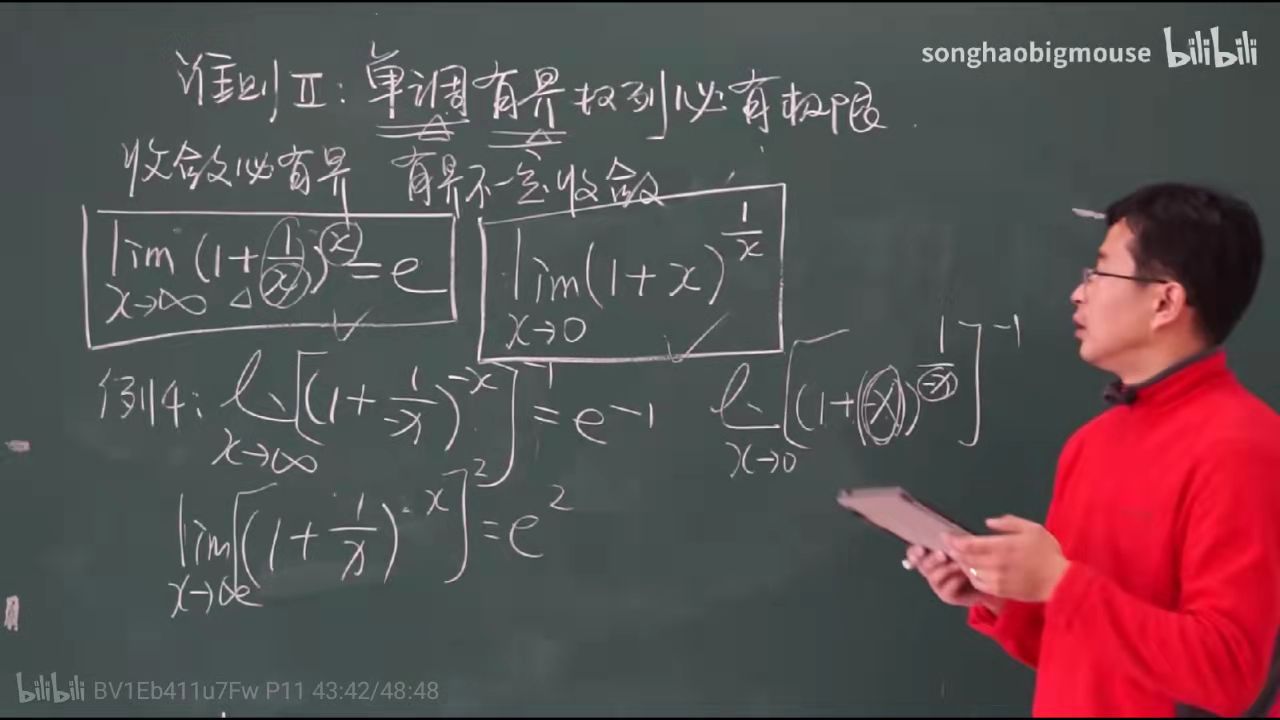 songhaobigmouse bilibili
准则Ⅱ：单调有界数列必有极限.
收敛必有界 有界不一定收敛
lim x→∞ (1+1/x)^x = e
lim x→0 (1+x)^(1/x)
例4: lim x→∞ [(1+1/-x)^-x]^-1 = e^-1
lim x→0 [(1+(-x))^(1/-x)]^-1
lim x→∞ [(1+1/x)^x]^2 = e^2
bilibili BV1Eb411u7Fw P11 43:42/48:48